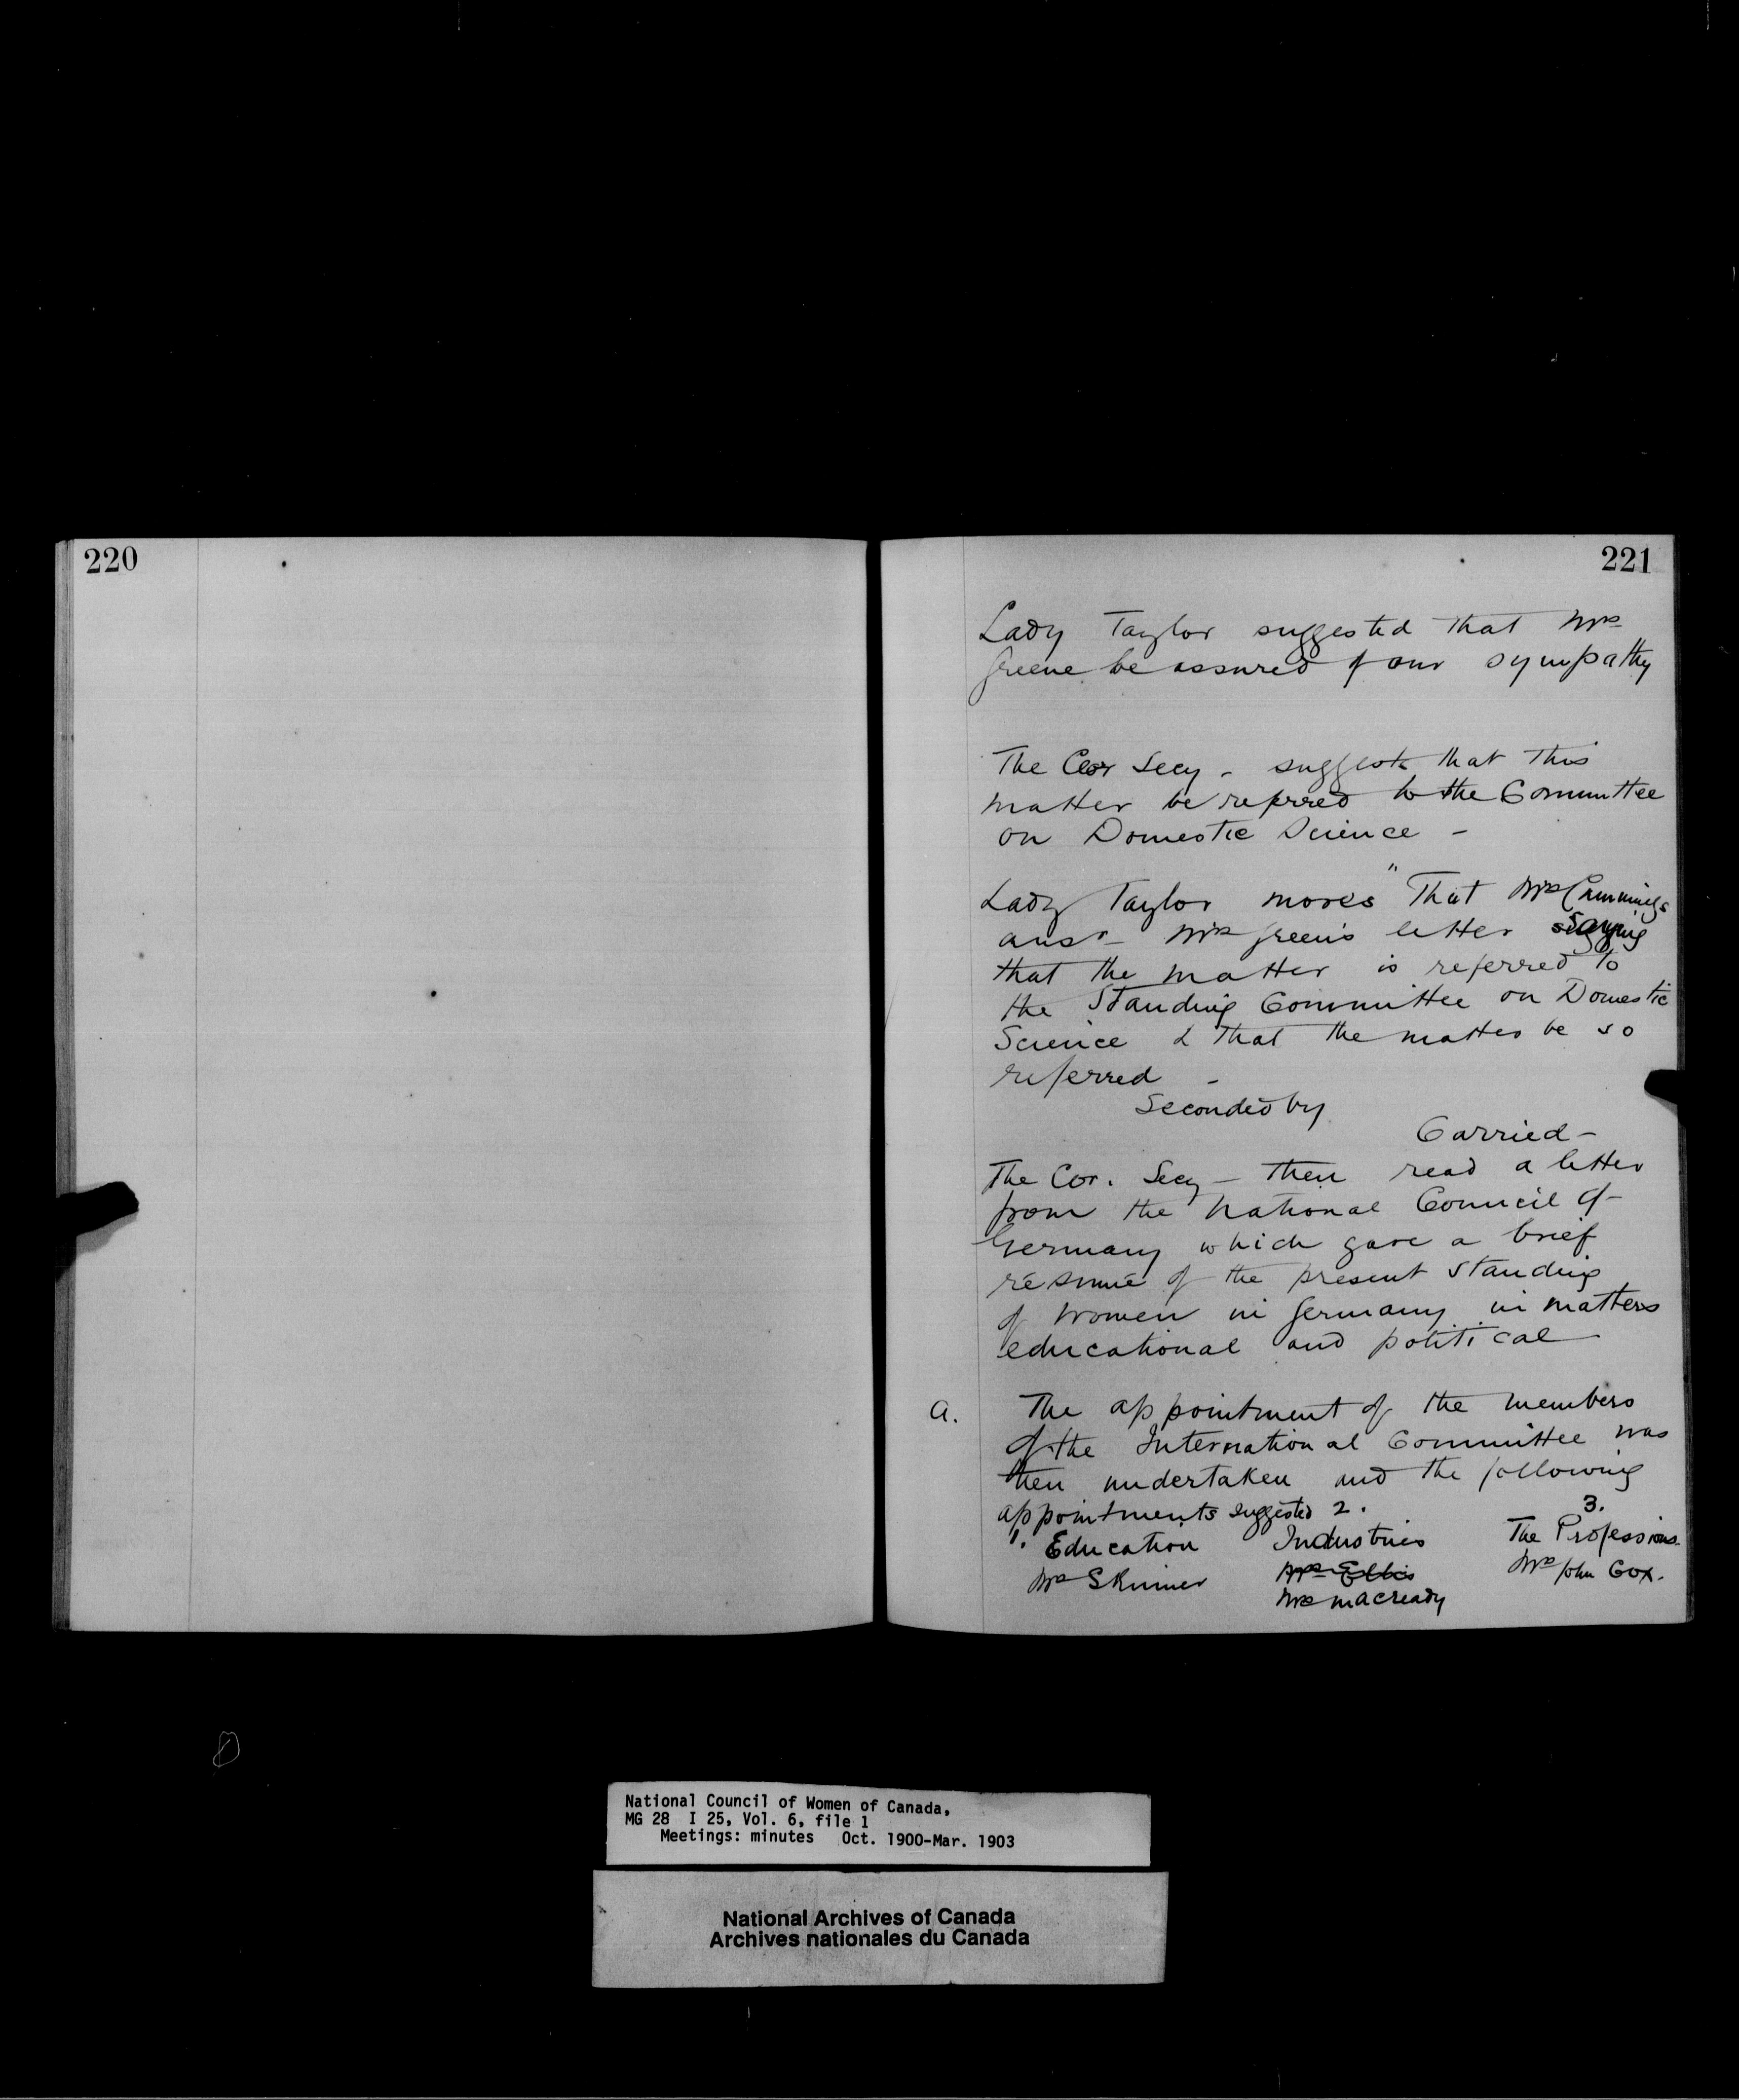 220
221
Lady Taylor suggested that Mrs
Greene be assured of our sympathy
The Cor Secy - suggests that this
matter be referred to the Committee
on Domestic Science -
Lady Taylor moves "That Mrs Cummings
ansr - Mrs Green's letter saying
that the matter is referred to
the Standing Committee on Domestic
Science & that the matter be so
referred -
Seconded by
Carried -
The Cor. Secy - then read a letter
from the National Council of
Germany which gave a brief
résumé of the present standing
of women in Germany in matters
educational and political
a. The appointment of the members
of the International Committee was
then undertaken and the following
appointments suggested 2. 3.
1. Education Industries The Professions
Mrs Skinner Mrs Ellis Mrs John Cox.
Mrs Macready
National Council of Women of Canada,
MG 28 I 25, Vol. 6, file 1
Meetings: minutes Oct. 1900-Mar. 1903
National Archives of Canada
Archives nationales du Canada